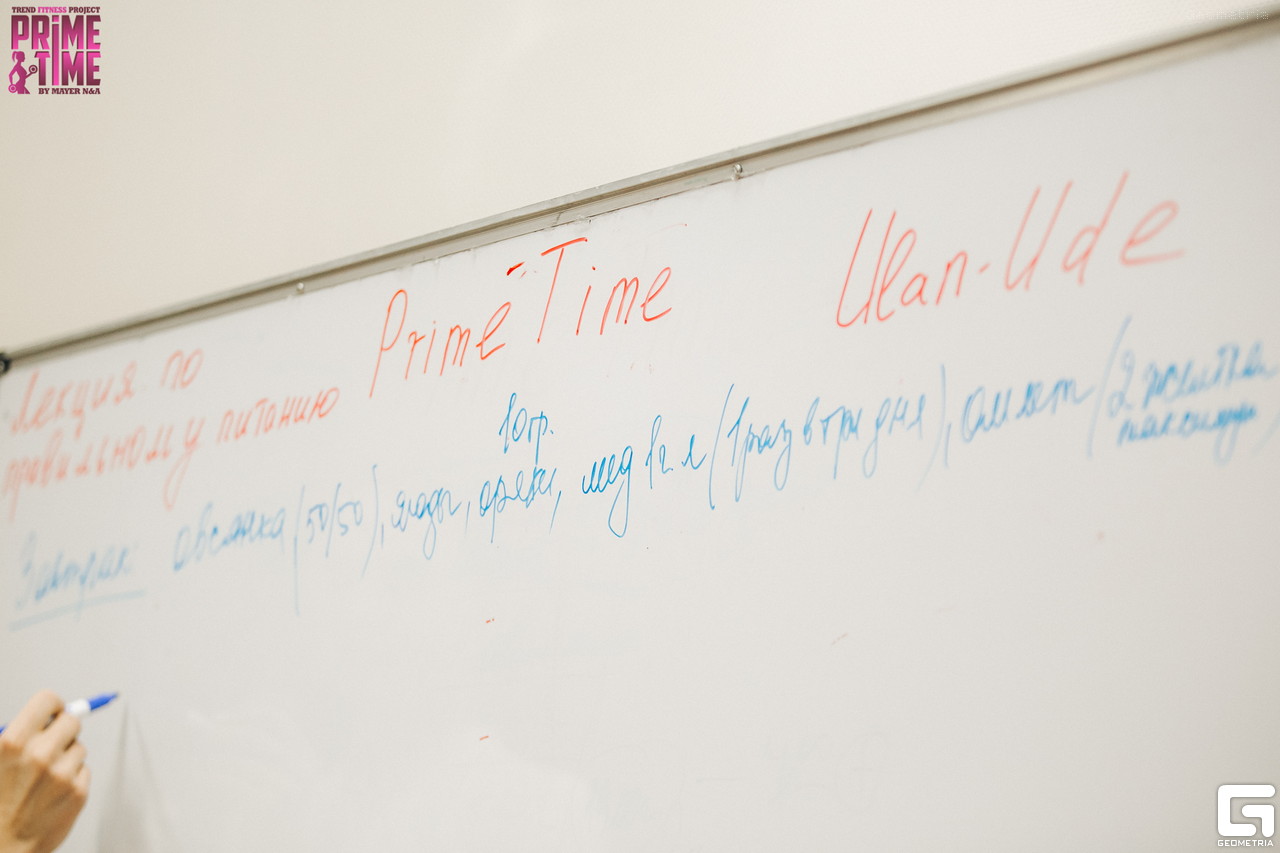 TREND FITNESS PROJECT
PRiME
TiME
BY MAYER N&A
Лекция по
правильному питанию
Prime Time
Ulan-Ude
10гр.
Завтрак: овсянка (50/50), ягоды, орехи, мёд 1ч.л (1 раз в три дня), омлет (2 желтка
максимум)
GEOMETRIA